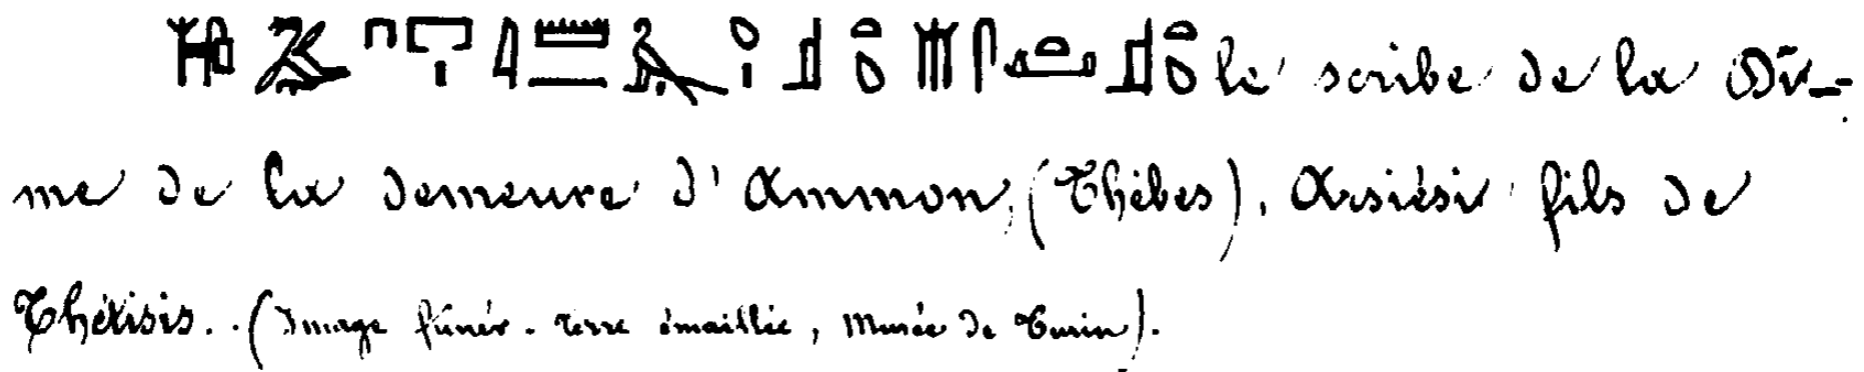 le scribe de la Dî-
me de la demeure d'Ammon, (Thèbes), Arsiésir fils de
Thétisis. (Image funér. terre émaillée, Musée de Turin).